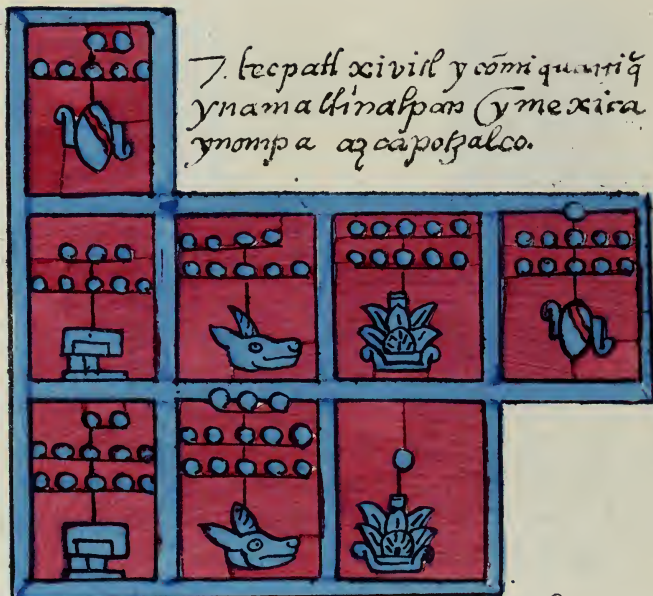 7. tecpatl xivitl y cōmiquaniq̃
ynamallinalpan ȝ y mexica
ynompa azcapotzalco.